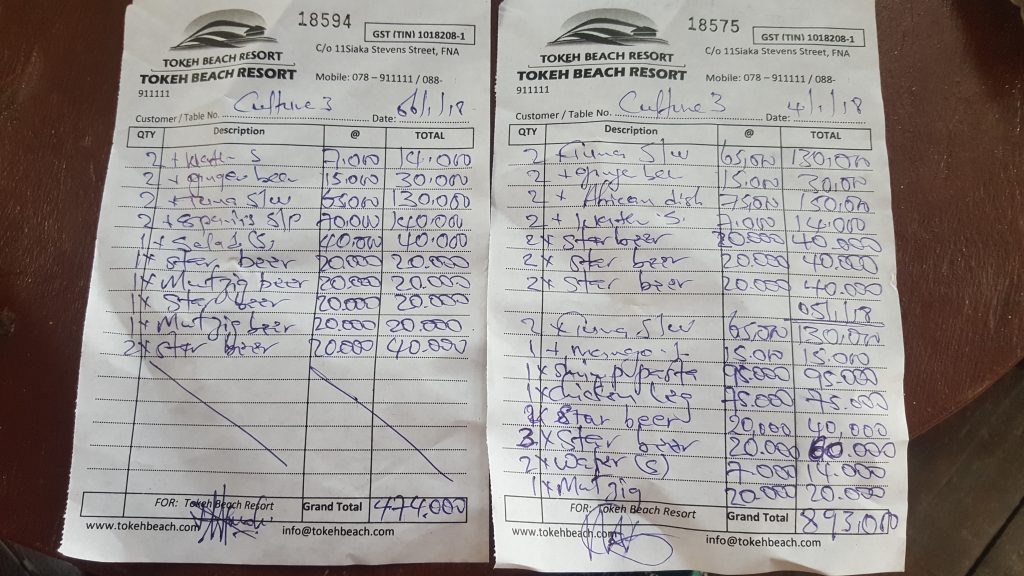 18594
GST (TIN) 1018208-1
C/o 11Siaka Stevens Street, FNA
TOKEH BEACH RESORT
TOKEH BEACH RESORT
Mobile: 078 – 911111 / 088-
911111
Customer / Table No. Culture 3 Date: 06/1/18
QTY Description @ TOTAL
2 + water S 7.000 14.000
2 + ginger beer 15.000 30.000
2 + tuna S/w 65.000 130.000
2 + S/P 70.000 140.000
1 + Salad (S) 40.000 40.000
1 x Star beer 20.000 20.000
1 x Mutzig beer 20.000 20.000
1 x Star beer 20.000 20.000
1 x Mutzig beer 20.000 20.000
2 x Star beer 20.000 40.000
FOR: Tokeh Beach Resort Grand Total 474.000
www.tokehbeach.com info@tokehbeach.com
18575
GST (TIN) 1018208-1
C/o 11Siaka Stevens Street, FNA
TOKEH BEACH RESORT
TOKEH BEACH RESORT
Mobile: 078 – 911111 / 088-
911111
Customer / Table No. Culture 3 Date: 4/1/18
QTY Description @ TOTAL
2 x Tuna S/w 65,000 130,000
2 + ginge bee 15.000 30,000
2 + African dish 75,000 150,000
2 + water S. 7.000 14.000
2 x Star beer 20.000 40.000
2 x Star beer 20.000 40.000
2 x Star beer 20.000 40.000
05/1/18
2 x Tuna S/w 65,000 130,000
1 + 15.000 15.000
1 x Shrimp pasta 95.000 95.000
1 x Chicken Leg 75.000 75.000
2 x Star beer 20,000 40,000
3 x Star beer 20.000 60.000
2 x Water (S) 7.000 14.000
1 x Mutzig 20.000 20.000
FOR: Tokeh Beach Resort Grand Total 893,000
www.tokehbeach.com info@tokehbeach.com